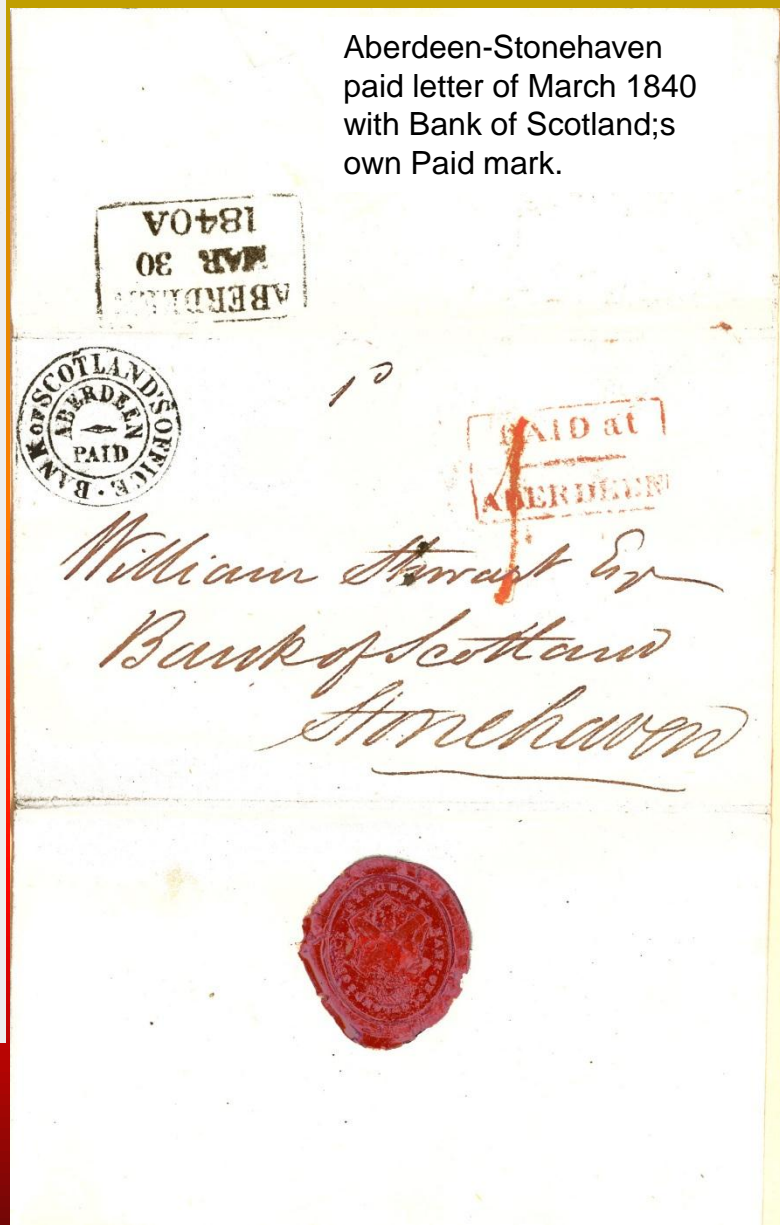 Aberdeen-Stonehaven
paid letter of March 1840
with Bank of Scotland;s
own Paid mark.
ABERDEEN
MAR 30
1840A
BANK OF SCOTLAND'S OFFICE
ABERDEEN
PAID
PAID at
ABERDEEN
1
William Stewart Esq
Bank of Scotland
Stonehaven